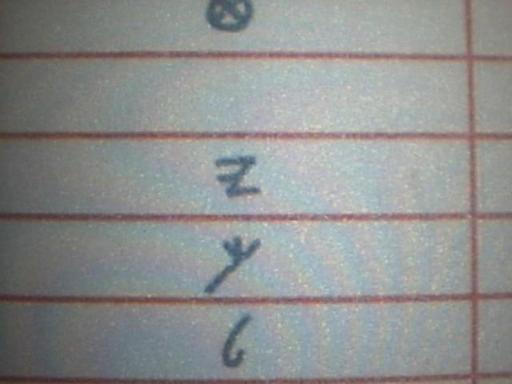 ⊗
Z
y
6